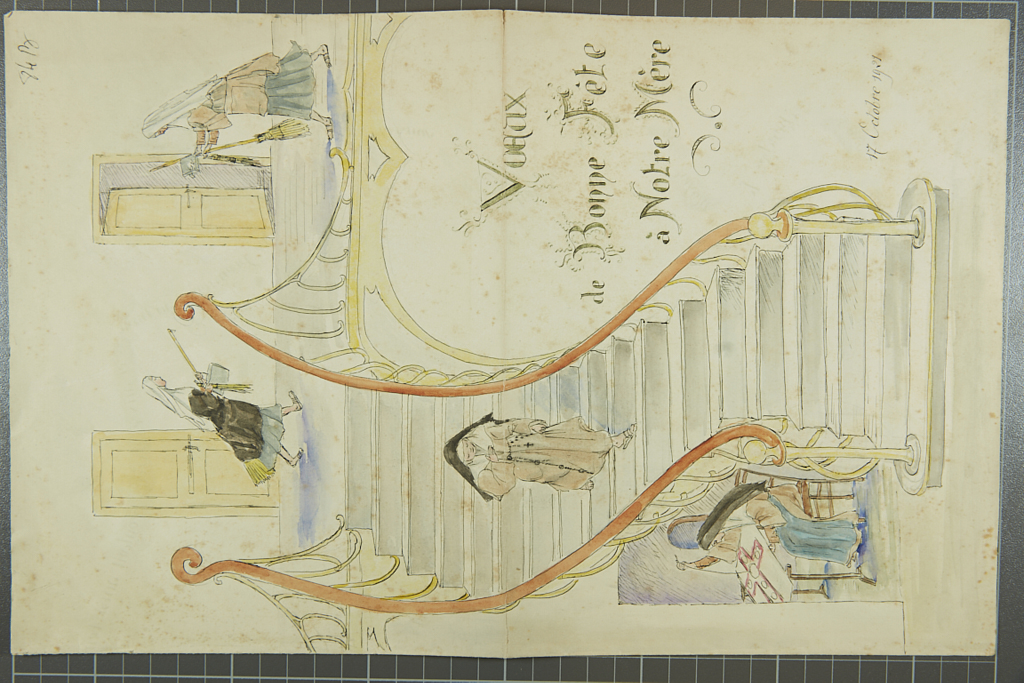 Vœux
de Bonne Fête
à Notre Mère
17 Octobre 1901